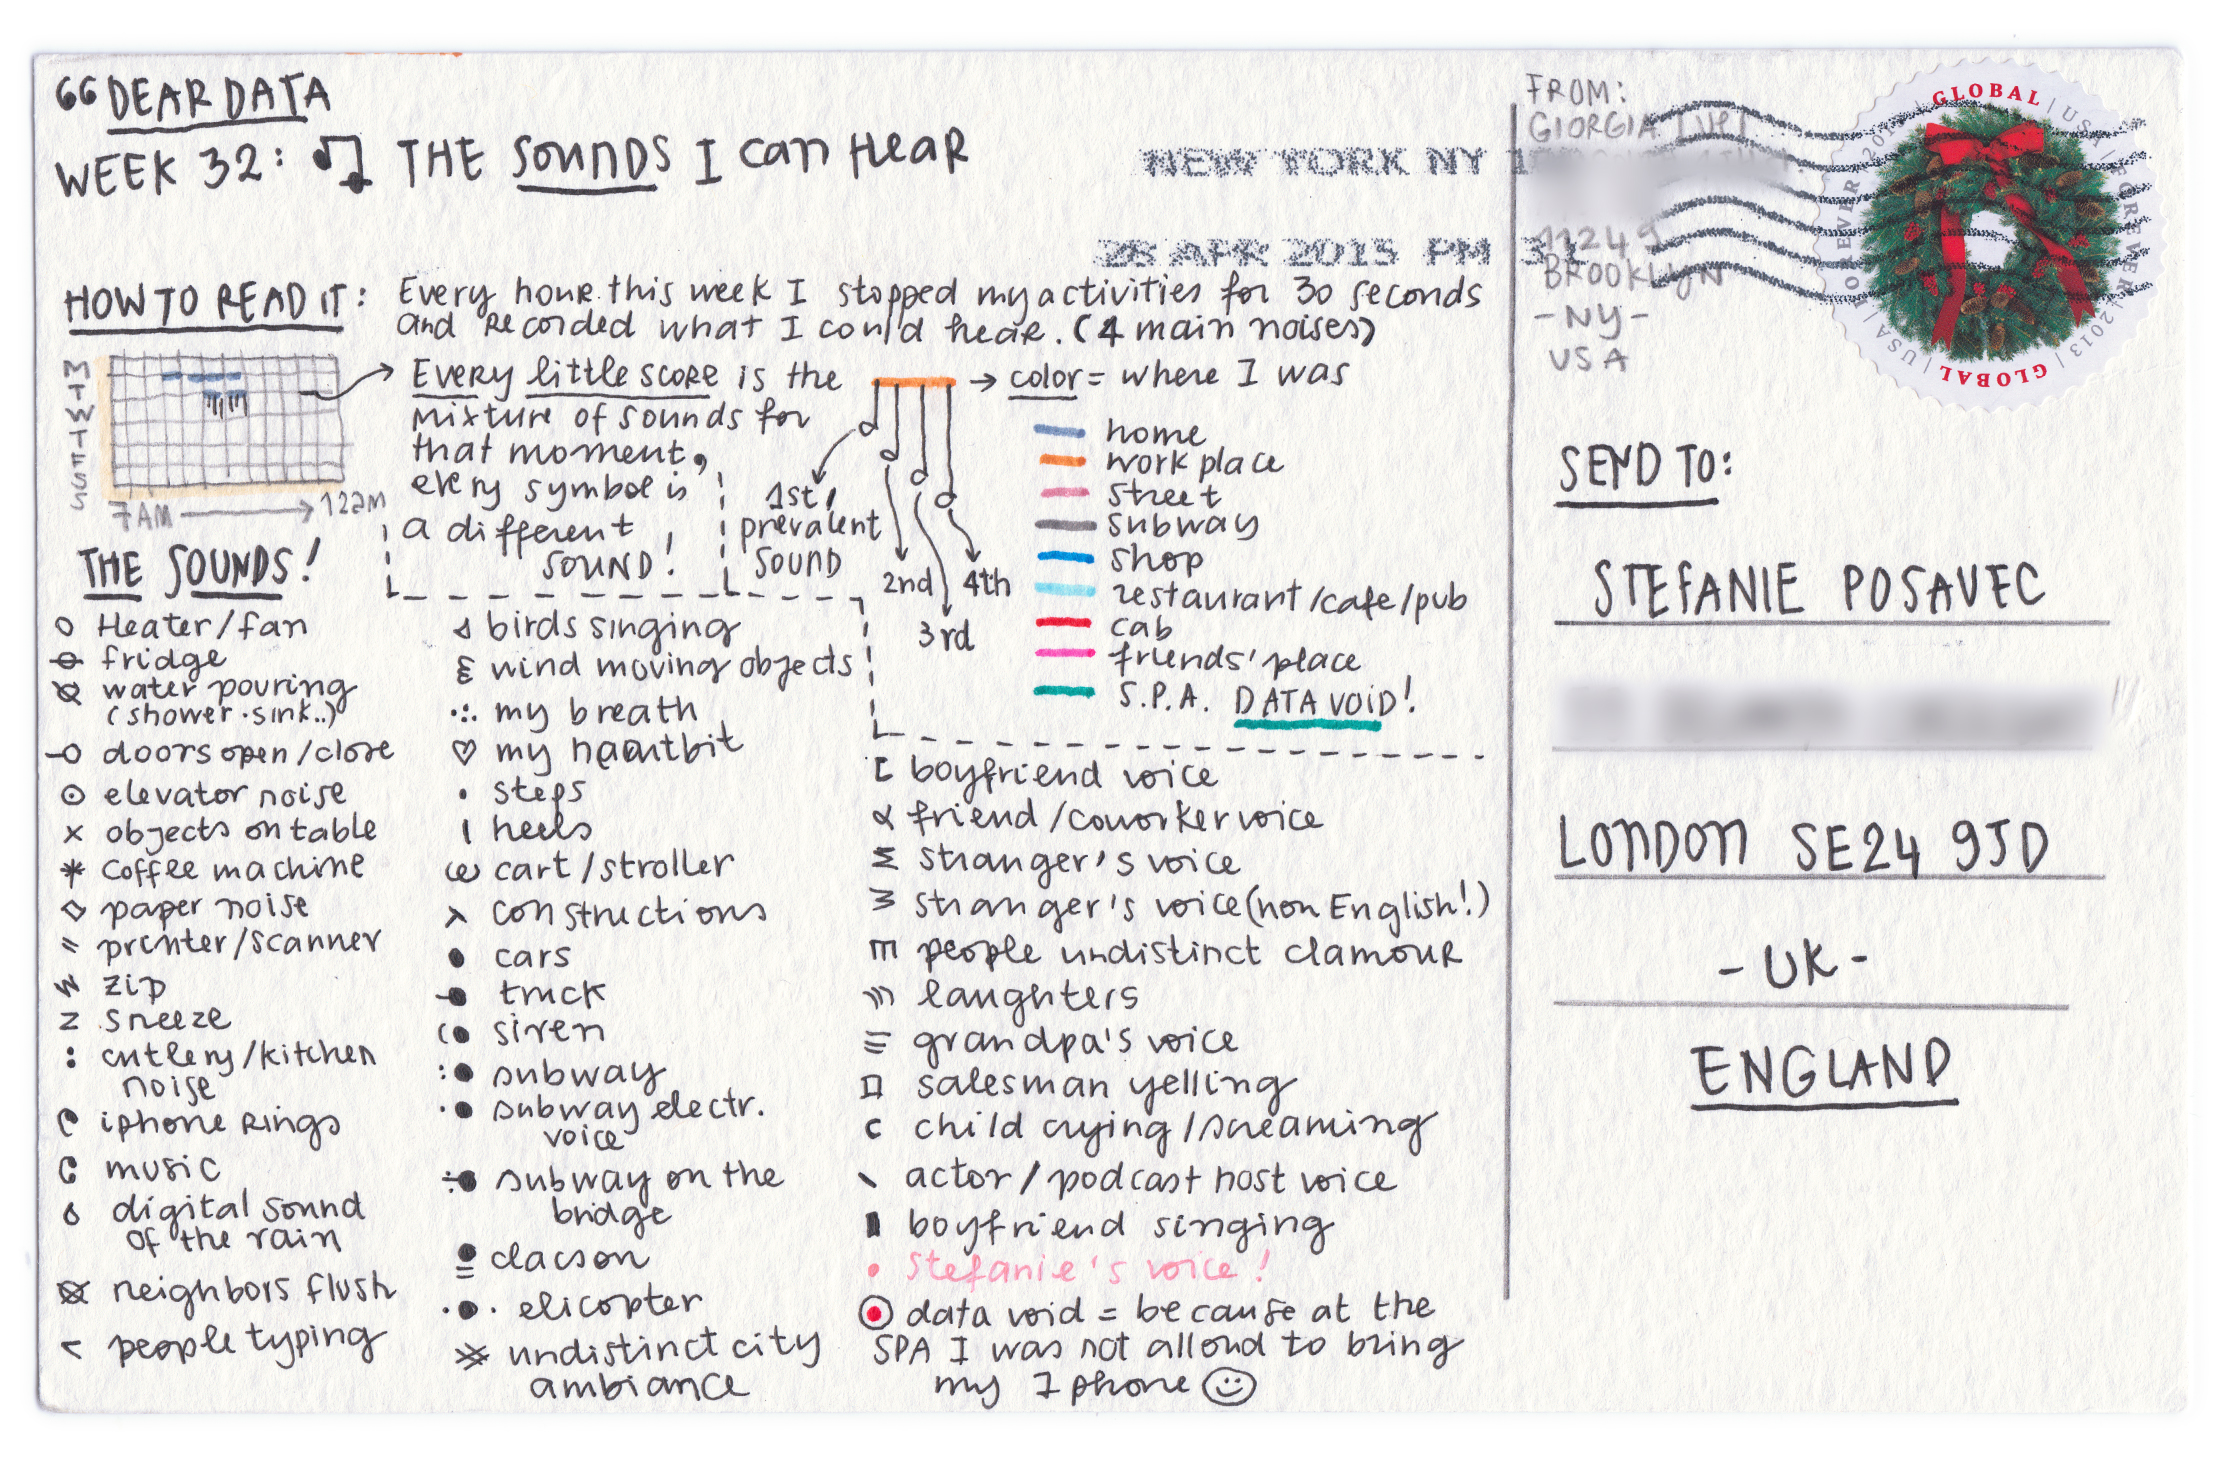 DEAR DATA
WEEK 32: THE SOUNDS I can HEAR
HOW TO READ IT: Every hour this week I stopped my activities for 30 seconds
and recorded what I could hear. (4 main noises)
M
T
W
T
F
S
S
7AM
12am
Every little score is the
mixture of sounds for
that moment,
every symbol is
a different
SOUND!
1st,
prevalent
SOUND
2nd
3rd
4th
color = where I was
home
work place
street
subway
shop
restaurant/cafe/pub
cab
friends' place
S.P.A. DATA VOID!
THE SOUNDS!
Heater/fan
fridge
water pouring
(shower.sink..)
doors open/close
elevator noise
objects on table
coffee machine
paper noise
printer/scanner
zip
sneeze
cutlery/kitchen
noise
iphone rings
music
digital sound
of the rain
neighbors flush
people typing
birds singing
wind moving objects
my breath
my heartbit
steps
heels
cart/stroller
constructions
cars
truck
siren
subway
subway electr.
voice
subway on the
bridge
clacson
elicopter
undistinct city
ambiance
boyfriend voice
friend/coworker voice
stranger's voice
stranger's voice (non English!)
people undistinct clamour
laughters
grandpa's voice
salesman yelling
child crying/screaming
actor/podcast host voice
boyfriend singing
Stefanie's voice!
data void = because at the
SPA I was not allowd to bring
my Iphone
NEW YORK NY
28 APR 2015 PM
FROM:
GIORGIA LUPI
11249
BROOKLYN
-NY-
USA
GLOBAL | USA | FOREVER | 2013 | GLOBAL | USA | FOREVER 2013
SEND TO:
STEFANIE POSAVEC
LONDON SE24 9JD
- UK -
ENGLAND